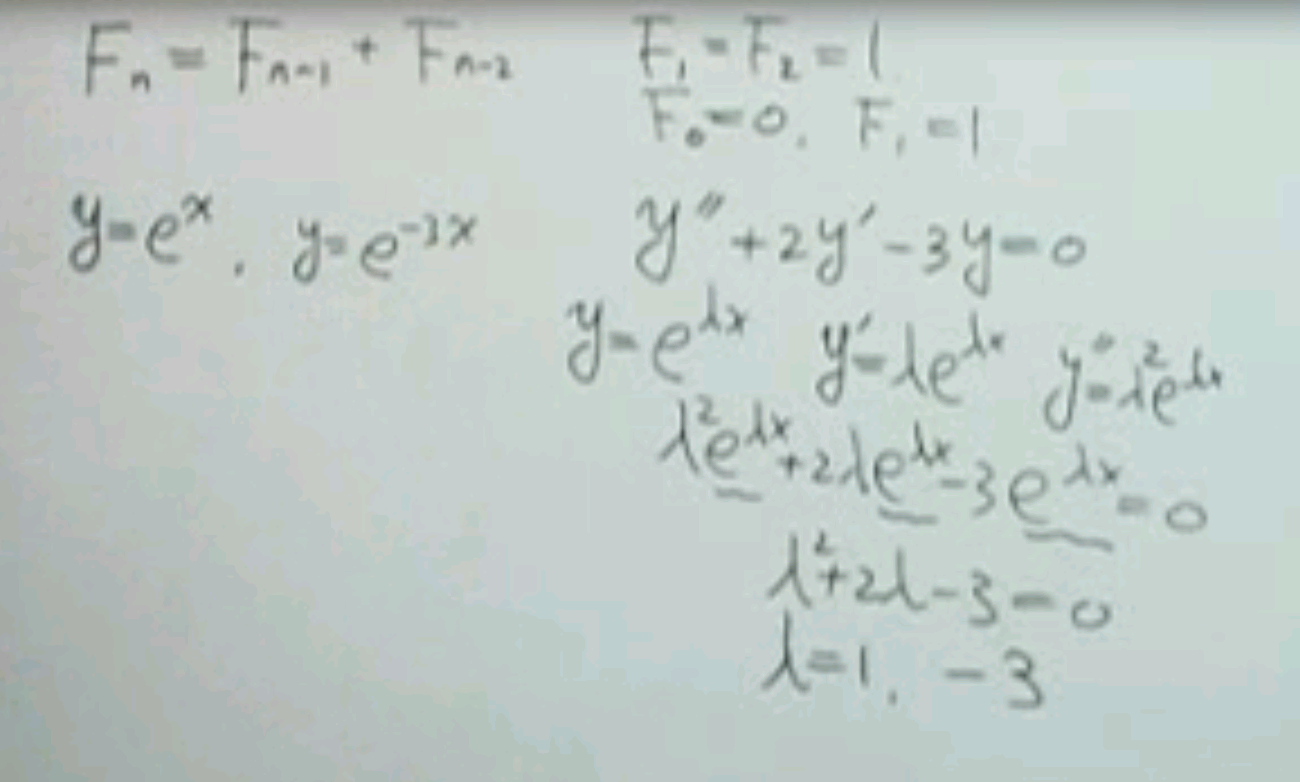 Fₙ = Fₙ₋₁ + Fₙ₋₂ F₁ = F₂ = 1
F₀ = 0, F₁ = 1
y = eˣ, y = e⁻³ˣ y″ + 2y′ − 3y = 0
y = e^λx y′ = λe^λx y″ = λ²e^λx
λ²e^λx + 2λe^λx − 3e^λx = 0
λ² + 2λ − 3 = 0
λ = 1, −3